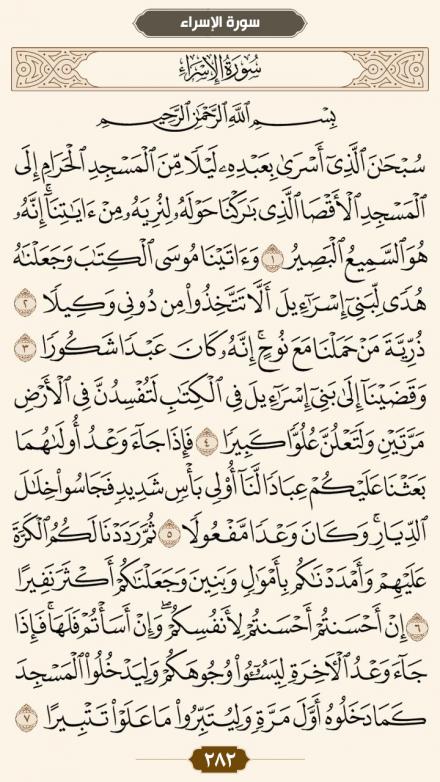 سورة الإسراء
سُورَةُ الإِسْرَاءِ
بِسْمِ اللَّهِ الرَّحْمَٰنِ الرَّحِيمِ
سُبْحَٰنَ ٱلَّذِىٓ أَسْرَىٰ بِعَبْدِهِۦ لَيْلًا مِّنَ ٱلْمَسْجِدِ ٱلْحَرَامِ إِلَى
ٱلْمَسْجِدِ ٱلْأَقْصَا ٱلَّذِى بَٰرَكْنَا حَوْلَهُۥ لِنُرِيَهُۥ مِنْ ءَايَٰتِنَآ ۚ إِنَّهُۥ
هُوَ ٱلسَّمِيعُ ٱلْبَصِيرُ ١ وَءَاتَيْنَا مُوسَى ٱلْكِتَٰبَ وَجَعَلْنَٰهُ
هُدًى لِّبَنِىٓ إِسْرَٰٓءِيلَ أَلَّا تَتَّخِذُوا۟ مِن دُونِى وَكِيلًا ٢
ذُرِّيَّةَ مَنْ حَمَلْنَا مَعَ نُوحٍ ۚ إِنَّهُۥ كَانَ عَبْدًا شَكُورًا ٣
وَقَضَيْنَآ إِلَىٰ بَنِىٓ إِسْرَٰٓءِيلَ فِى ٱلْكِتَٰبِ لَتُفْسِدُنَّ فِى ٱلْأَرْضِ
مَرَّتَيْنِ وَلَتَعْلُنَّ عُلُوًّا كَبِيرًا ٤ فَإِذَا جَآءَ وَعْدُ أُولَىٰهُمَا
بَعَثْنَا عَلَيْكُمْ عِبَادًا لَّنَآ أُو۟لِى بَأْسٍ شَدِيدٍ فَجَاسُوا۟ خِلَٰلَ
ٱلدِّيَارِ ۚ وَكَانَ وَعْدًا مَّفْعُولًا ٥ ثُمَّ رَدَدْنَا لَكُمُ ٱلْكَرَّةَ
عَلَيْهِمْ وَأَمْدَدْنَٰكُم بِأَمْوَٰلٍ وَبَنِينَ وَجَعَلْنَٰكُمْ أَكْثَرَ نَفِيرًا
٦ إِنْ أَحْسَنتُمْ أَحْسَنتُمْ لِأَنفُسِكُمْ ۖ وَإِنْ أَسَأْتُمْ فَلَهَا ۚ فَإِذَا
جَآءَ وَعْدُ ٱلْءَاخِرَةِ لِيَسُۥٓـُٔوا۟ وُجُوهَكُمْ وَلِيَدْخُلُوا۟ ٱلْمَسْجِدَ
كَمَا دَخَلُوهُ أَوَّلَ مَرَّةٍ وَلِيُتَبِّرُوا۟ مَا عَلَوْا۟ تَتْبِيرًا ٧
٢٨٢